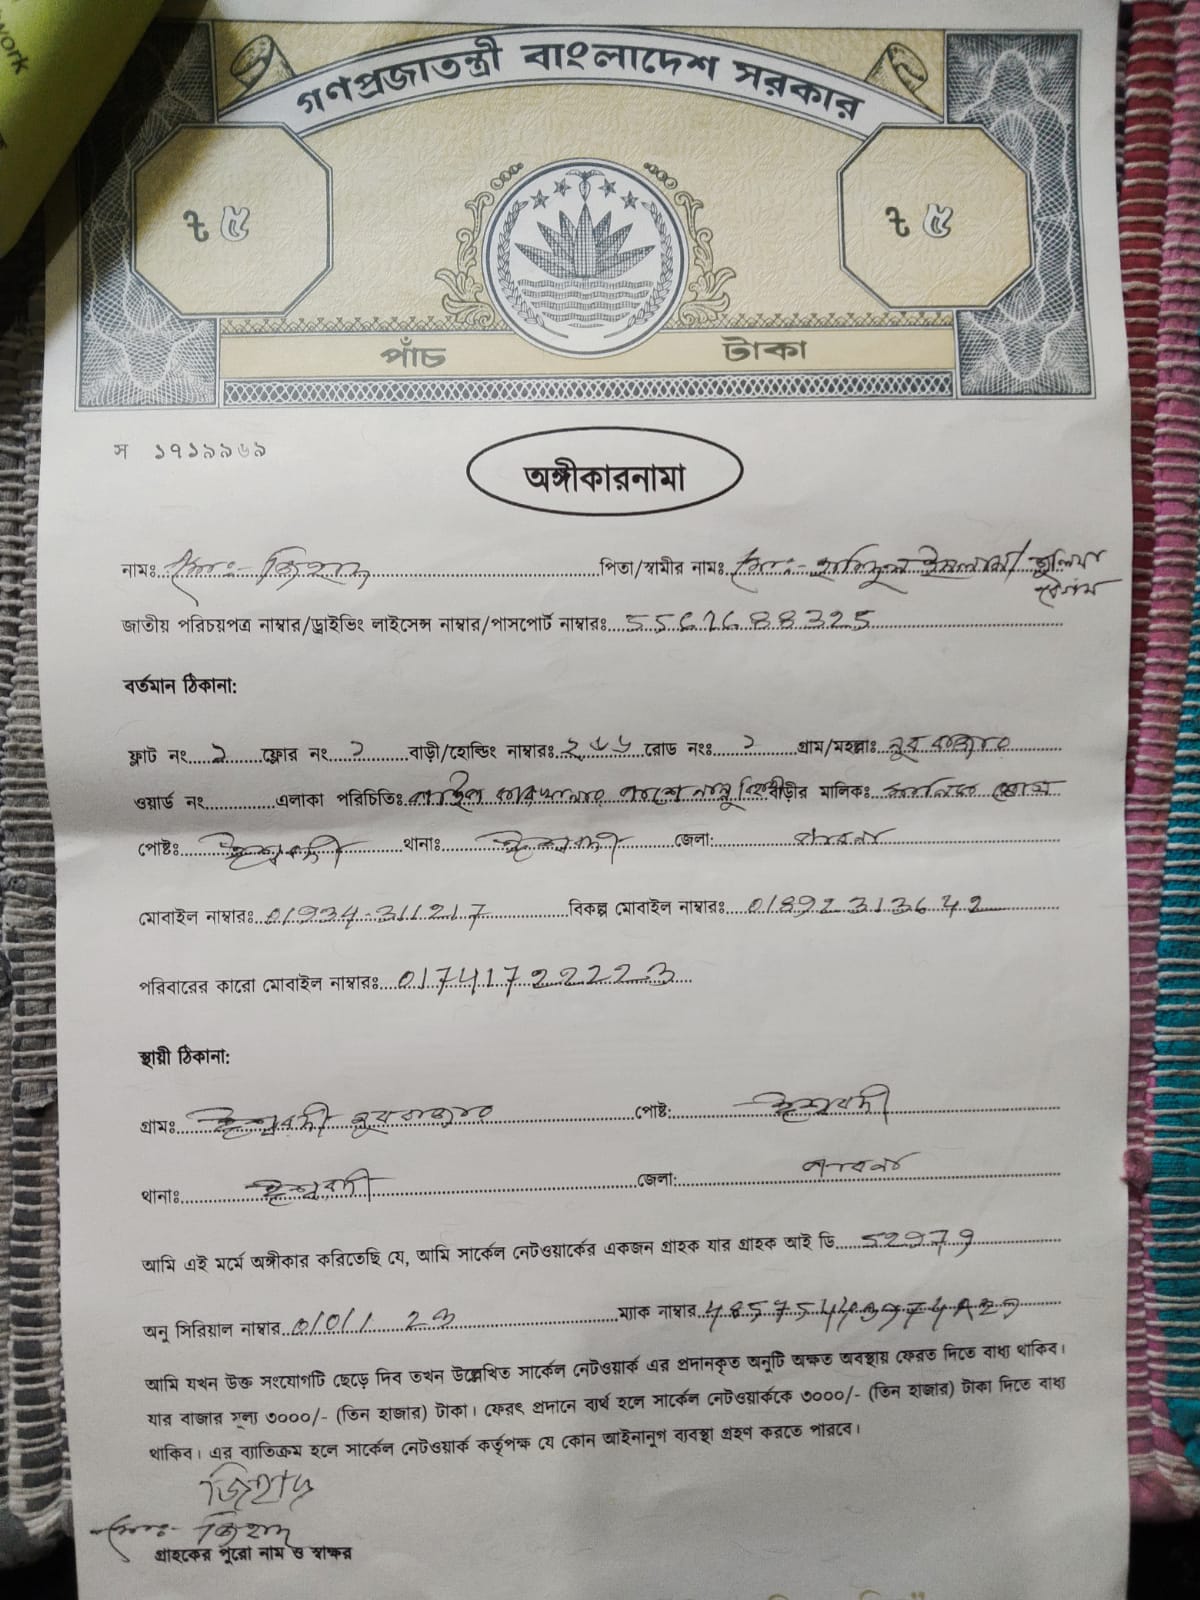 work
গণপ্রজাতন্ত্রী বাংলাদেশ সরকার
৳ ৫ ৳ ৫
পাঁচ টাকা
স ১৭১৯৯৬৯
অঙ্গীকারনামা
নামঃ মোঃ- জিহাদ পিতা/স্বামীর নামঃ মোঃ- ইসলাম/
বেগম
জাতীয় পরিচয়পত্র নাম্বার/ড্রাইভিং লাইসেন্স নাম্বার/পাসপোর্ট নাম্বারঃ
বর্তমান ঠিকানা:
ফ্লাট নং ফ্লোর নং বাড়ী/হোল্ডিং নাম্বারঃ রোড নংঃ গ্রাম/মহল্লাঃ
ওয়ার্ড নং এলাকা পরিচিতিঃ বাড়ীর মালিকঃ
পোষ্টঃ ঈশ্বরদী থানাঃ ঈশ্বরদী জেলা: পাবনা
মোবাইল নাম্বারঃ 01934-311217 বিকল্প মোবাইল নাম্বারঃ 01892313642
পরিবারের কারো মোবাইল নাম্বারঃ 01741722223
স্থায়ী ঠিকানা:
গ্রামঃ ঈশ্বরদী পোষ্ট: ঈশ্বরদী
থানাঃ ঈশ্বরদী জেলা: পাবনা
আমি এই মর্মে অঙ্গীকার করিতেছি যে, আমি সার্কেল নেটওয়ার্কের একজন গ্রাহক যার গ্রাহক আই ডি
অনু সিরিয়াল নাম্বার ম্যাক নাম্বার
আমি যখন উক্ত সংযোগটি ছেড়ে দিব তখন উল্লেখিত সার্কেল নেটওয়ার্ক এর প্রদানকৃত অনুটি অক্ষত অবস্থায় ফেরত দিতে বাধ্য থাকিব।
যার বাজার মূল্য ৩০০০/- (তিন হাজার) টাকা। ফেরৎ প্রদানে ব্যর্থ হলে সার্কেল নেটওয়ার্ককে ৩০০০/- (তিন হাজার) টাকা দিতে বাধ্য
থাকিব। এর ব্যাতিক্রম হলে সার্কেল নেটওয়ার্ক কর্তৃপক্ষ যে কোন আইনানুগ ব্যবস্থা গ্রহণ করতে পারবে।
জিহাদ
মোঃ- জিহাদ
গ্রাহকের পুরো নাম ও স্বাক্ষর